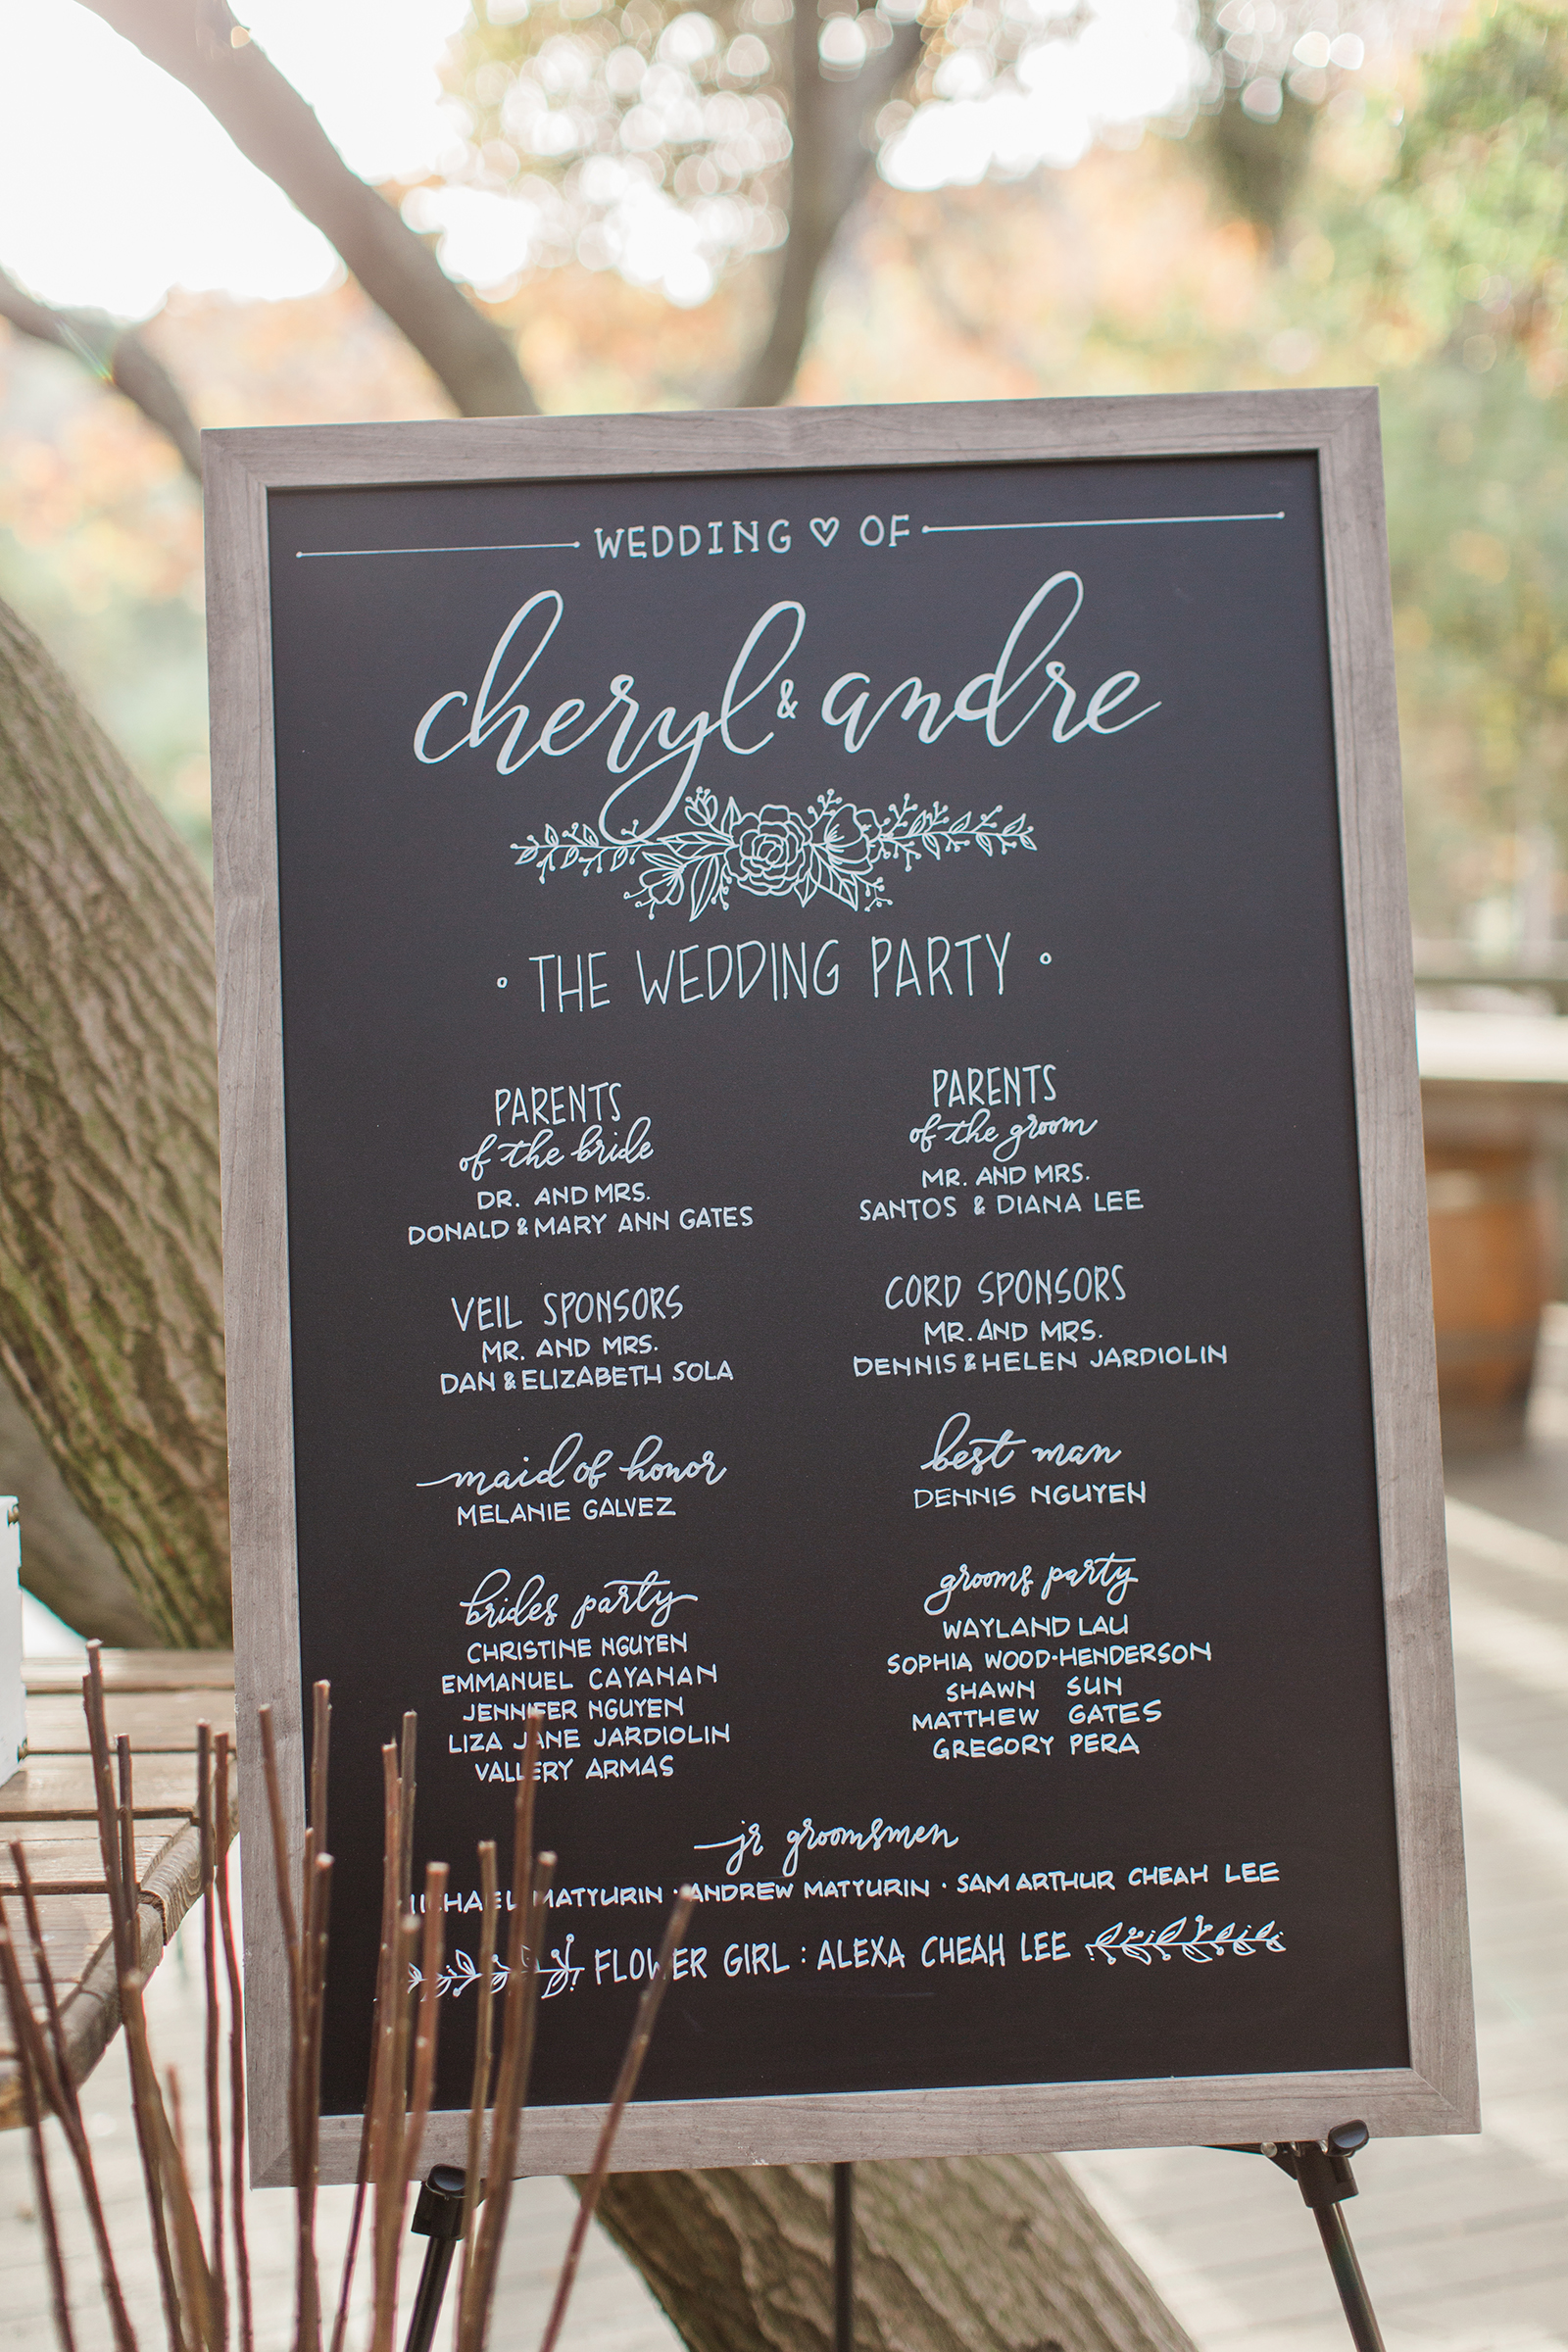 WEDDING ♡ OF
cheryl & andre
• THE WEDDING PARTY •
PARENTS
of the bride
DR. AND MRS.
DONALD & MARY ANN GATES
PARENTS
of the groom
MR. AND MRS.
SANTOS & DIANA LEE
VEIL SPONSORS
MR. AND MRS.
DAN & ELIZABETH SOLA
CORD SPONSORS
MR. AND MRS.
DENNIS & HELEN JARDIOLIN
maid of honor
MELANIE GALVEZ
best man
DENNIS NGUYEN
brides party
CHRISTINE NGUYEN
EMMANUEL CAYANAN
JENNIFER NGUYEN
LIZA JANE JARDIOLIN
VALLERY ARMAS
grooms party
WAYLAND LAU
SOPHIA WOOD-HENDERSON
SHAWN SUN
MATTHEW GATES
GREGORY PERA
jr groomsmen
MICHAEL MATYURIN • ANDREW MATYURIN • SAM ARTHUR CHEAH LEE
FLOWER GIRL : ALEXA CHEAH LEE